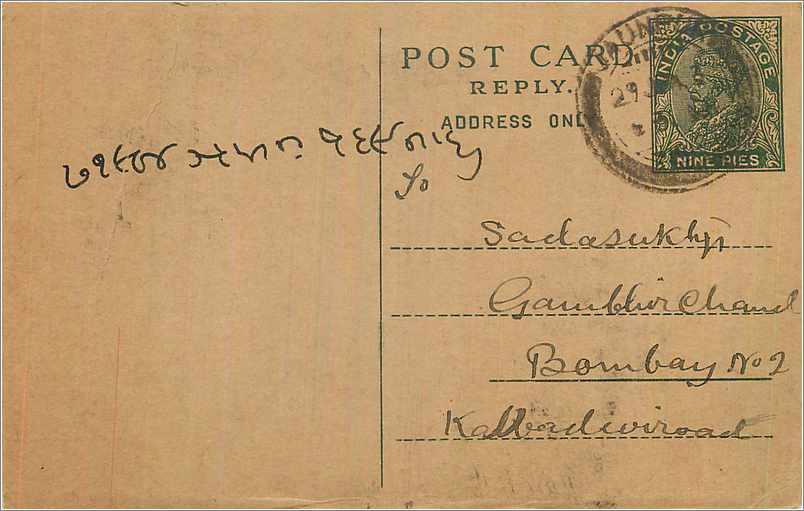 POST CARD
REPLY.
ADDRESS ONL
INDIA POSTAGE
NINE PIES
29
To
Sadasukhji
Gambhir Chand
Bombay No 2
Kalbadeviroad